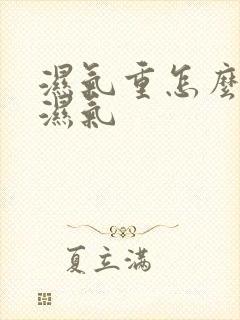 濕氣重怎麼
濕氣
夏立滿